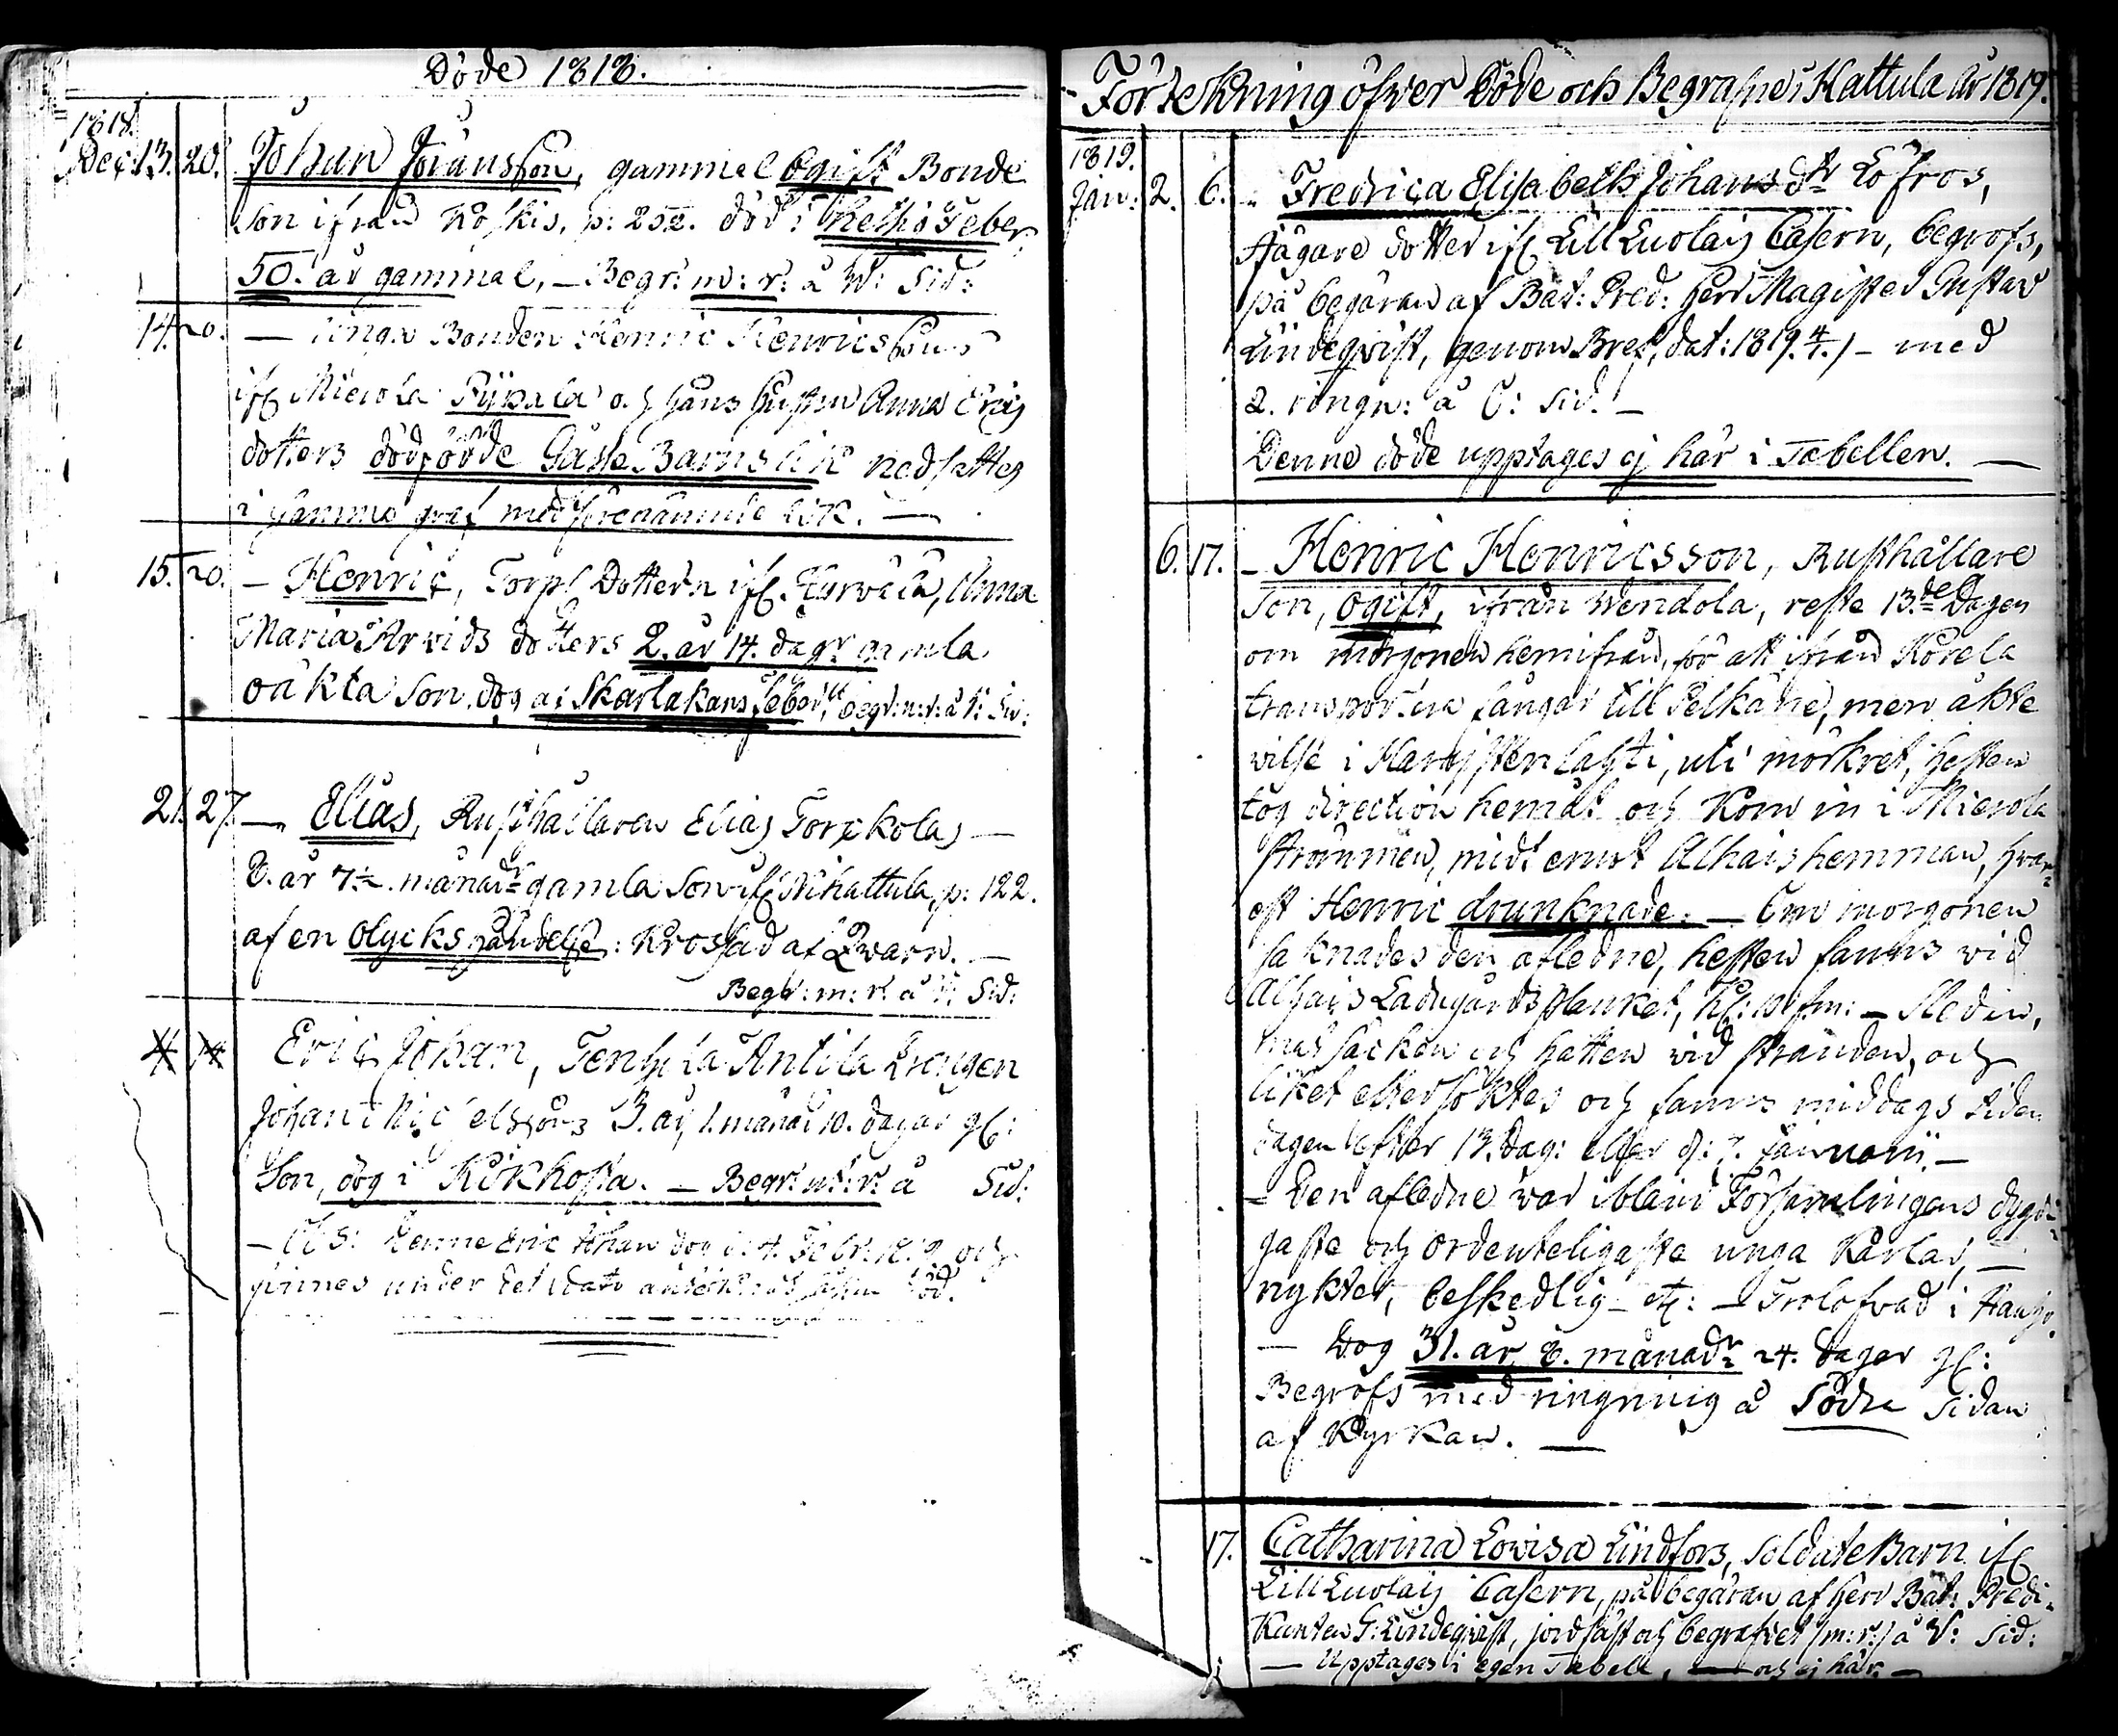 Döde 1818.
1818.
Dec: 13. 20. Johan Joransson, gammal ogift Bonde
son ifrån Koskis, p: 252. död i hethig Feber
50. år gammal, — Begr: m: r: å N: Sid:
14. 20. — Ungn Bonden Henric Henricssons
ifr Mierola Pijrala och hans hustru Anna Erics
dotters dödfödde Gåsse Barns lik nedsattes
i samma graf med förenämnde lik. —
15. 20. — Henric, Torp Dottern ifr, Anna
Maria Arvids dotters 2. år 14. dagr gamla
oäkta Son, dog af Skarlakans feber, begr: m: r: å N: Sid:
21. 27. — Elias, Rusthållaren Elias Torckolas —
8. år 7 ½ månadr gamla Son ifr Nihattula, p: 122.
af en olyckshändelse: Krossad af Qvarn. —
Begr: m: r: å N: Sid:
4 14 Eric Johan, Antila Drengen
Johan Michelssons 3. år 1. månad 10. dagar gl:
Son, dog i Kikhosta. — Begr: m: r: å Sid:
— Obs: Denne Eric Johan dog d: 4. Febr: 1819 och
finnes under det datum död.
Förtekning öfver Döde och Begrafne i Hattula år 1819.
1819.
Jan: 2. 6. Fredrica Elisabeth Johans dtr Löfros,
Jägare dotter ifr Lill Luolais Casern, begrofs,
på begäran af Bat: Pred: Herr Magister Gustav
Lindeqvist, genom Bref, dat: 1819. 4/1.) — med
2. ringn: å N: Sid. —
Denne döde upptages ej här i Tabellen. —
6. 17. — Henric Henricsson, Rusthållare
Son, ogift, ifrån Wendola, reste 13:de Dagen
om morgonen hemifrån, för att ifrån Korela
transportera fångar till Pelkäne, men åkte
vilse i, uti mörkret, hesten
tog direction hemåt och kom in i Mierola
strömmen, midt emot Alhais hemman, hvar-
est Henric drunknade. — Om morgonen
saknades den afledne, hesten fanns vid
Alhais Ladugårds planket, kl: 10 fm: — Sleden,
matsäcken och hatten vid stranden, och
liket eftersöktes och fanns middags tiden
dagen efter 13. Dag: eller d: 7. Januarii. —
— Den afledne var ibland Församlingens dygdi-
gaste och ordenteligaste unga Karlar, —
nykter, beskedlig — etc: — Trolofvad i Hauho.
— Dog 31. år 8. månadr 24. dagar gl:
Begrofs med ringning å Södre Sidan
af Kyrkan. —
17. Catharina Lovisa Lindfors, Soldate Barn ifr
Lill Luolais Casern, på begäran af Herr Bat: Predi-
kanten G: Lindeqvist, jordfäst och begrafvet (m: r:) å N: Sid:
— Upptages i egen Tabell, — och ej här. —